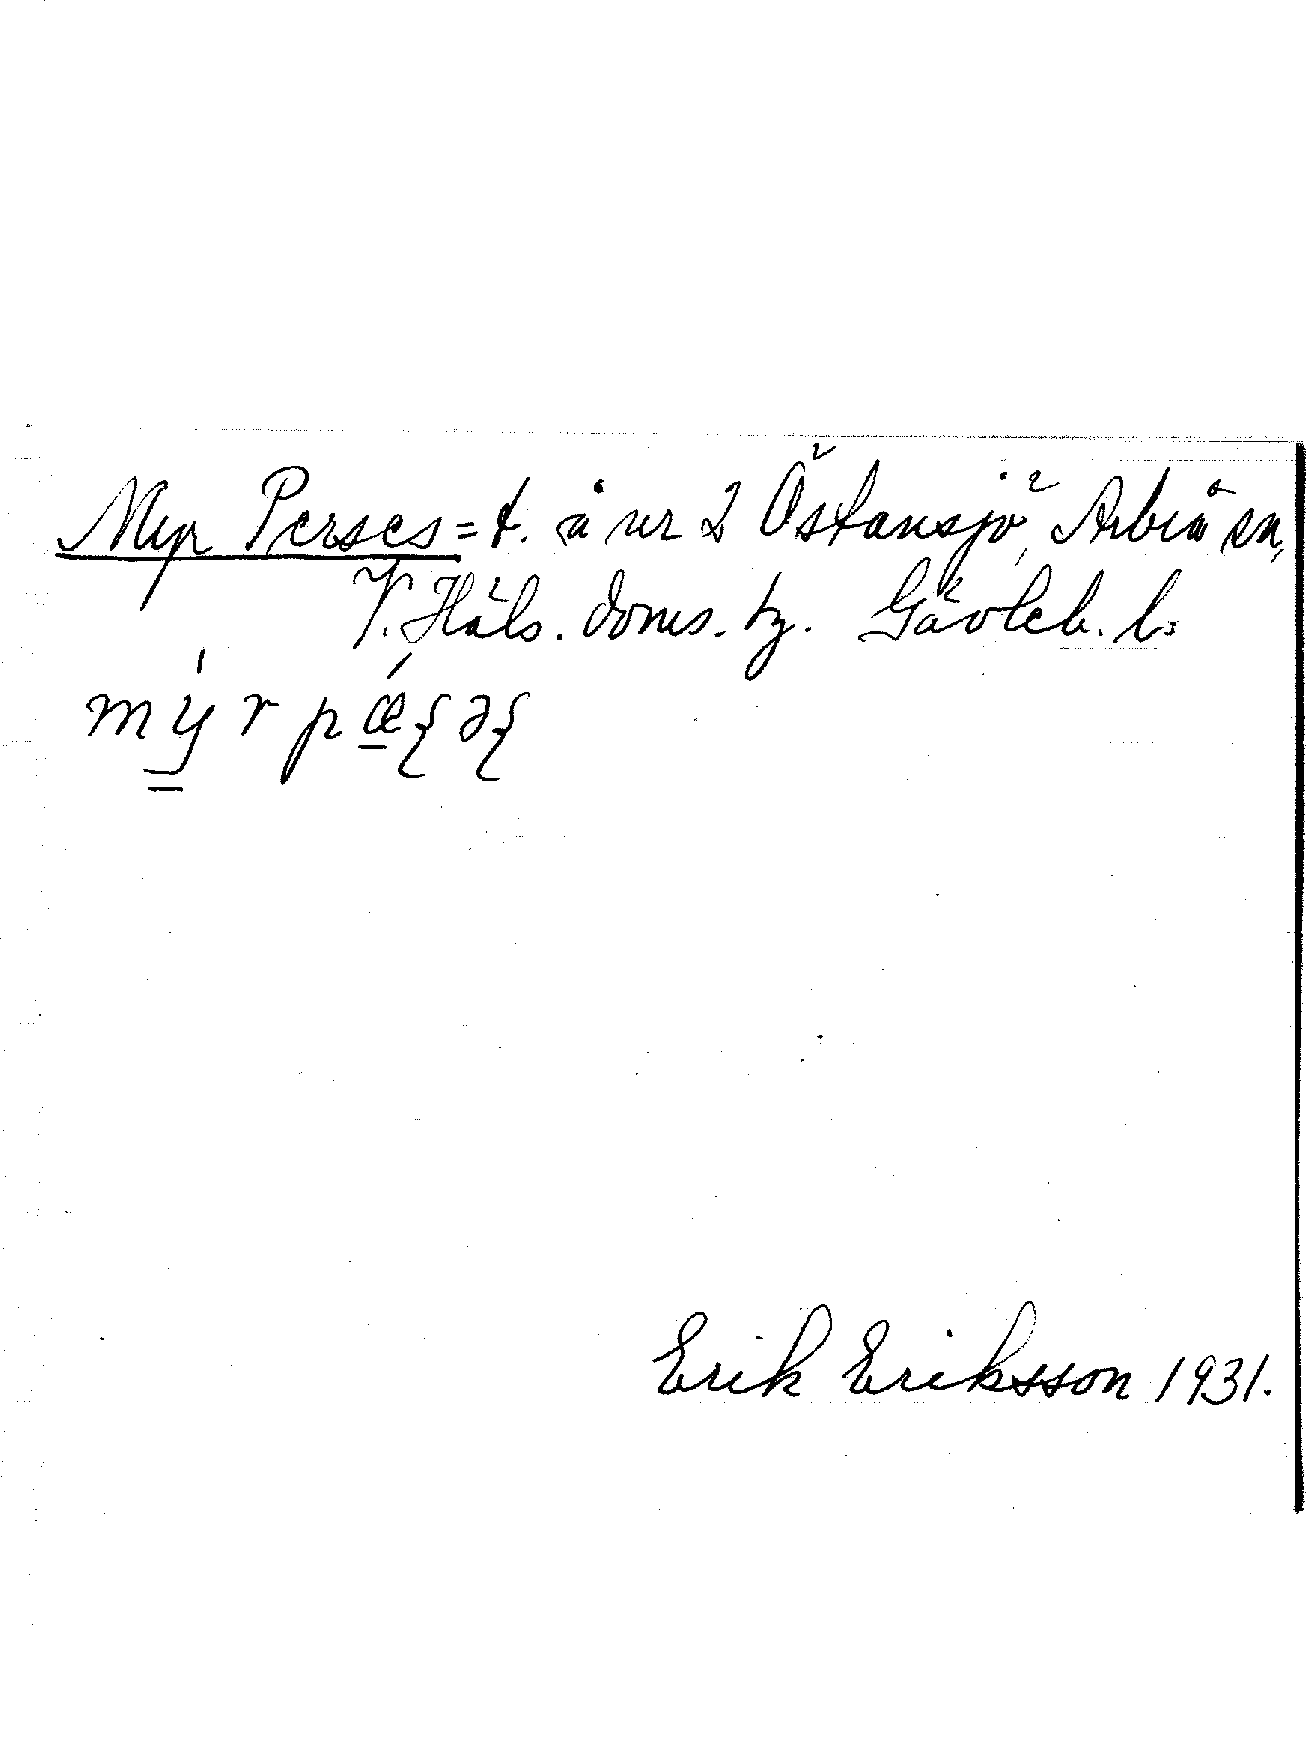 Myr Perses = t. å nr 2 Östansjö, Arbrå sn,
V. Häls. doms. tg. Gävleb. l.
mýr pǽ{ə{
Erik Eriksson 1931.